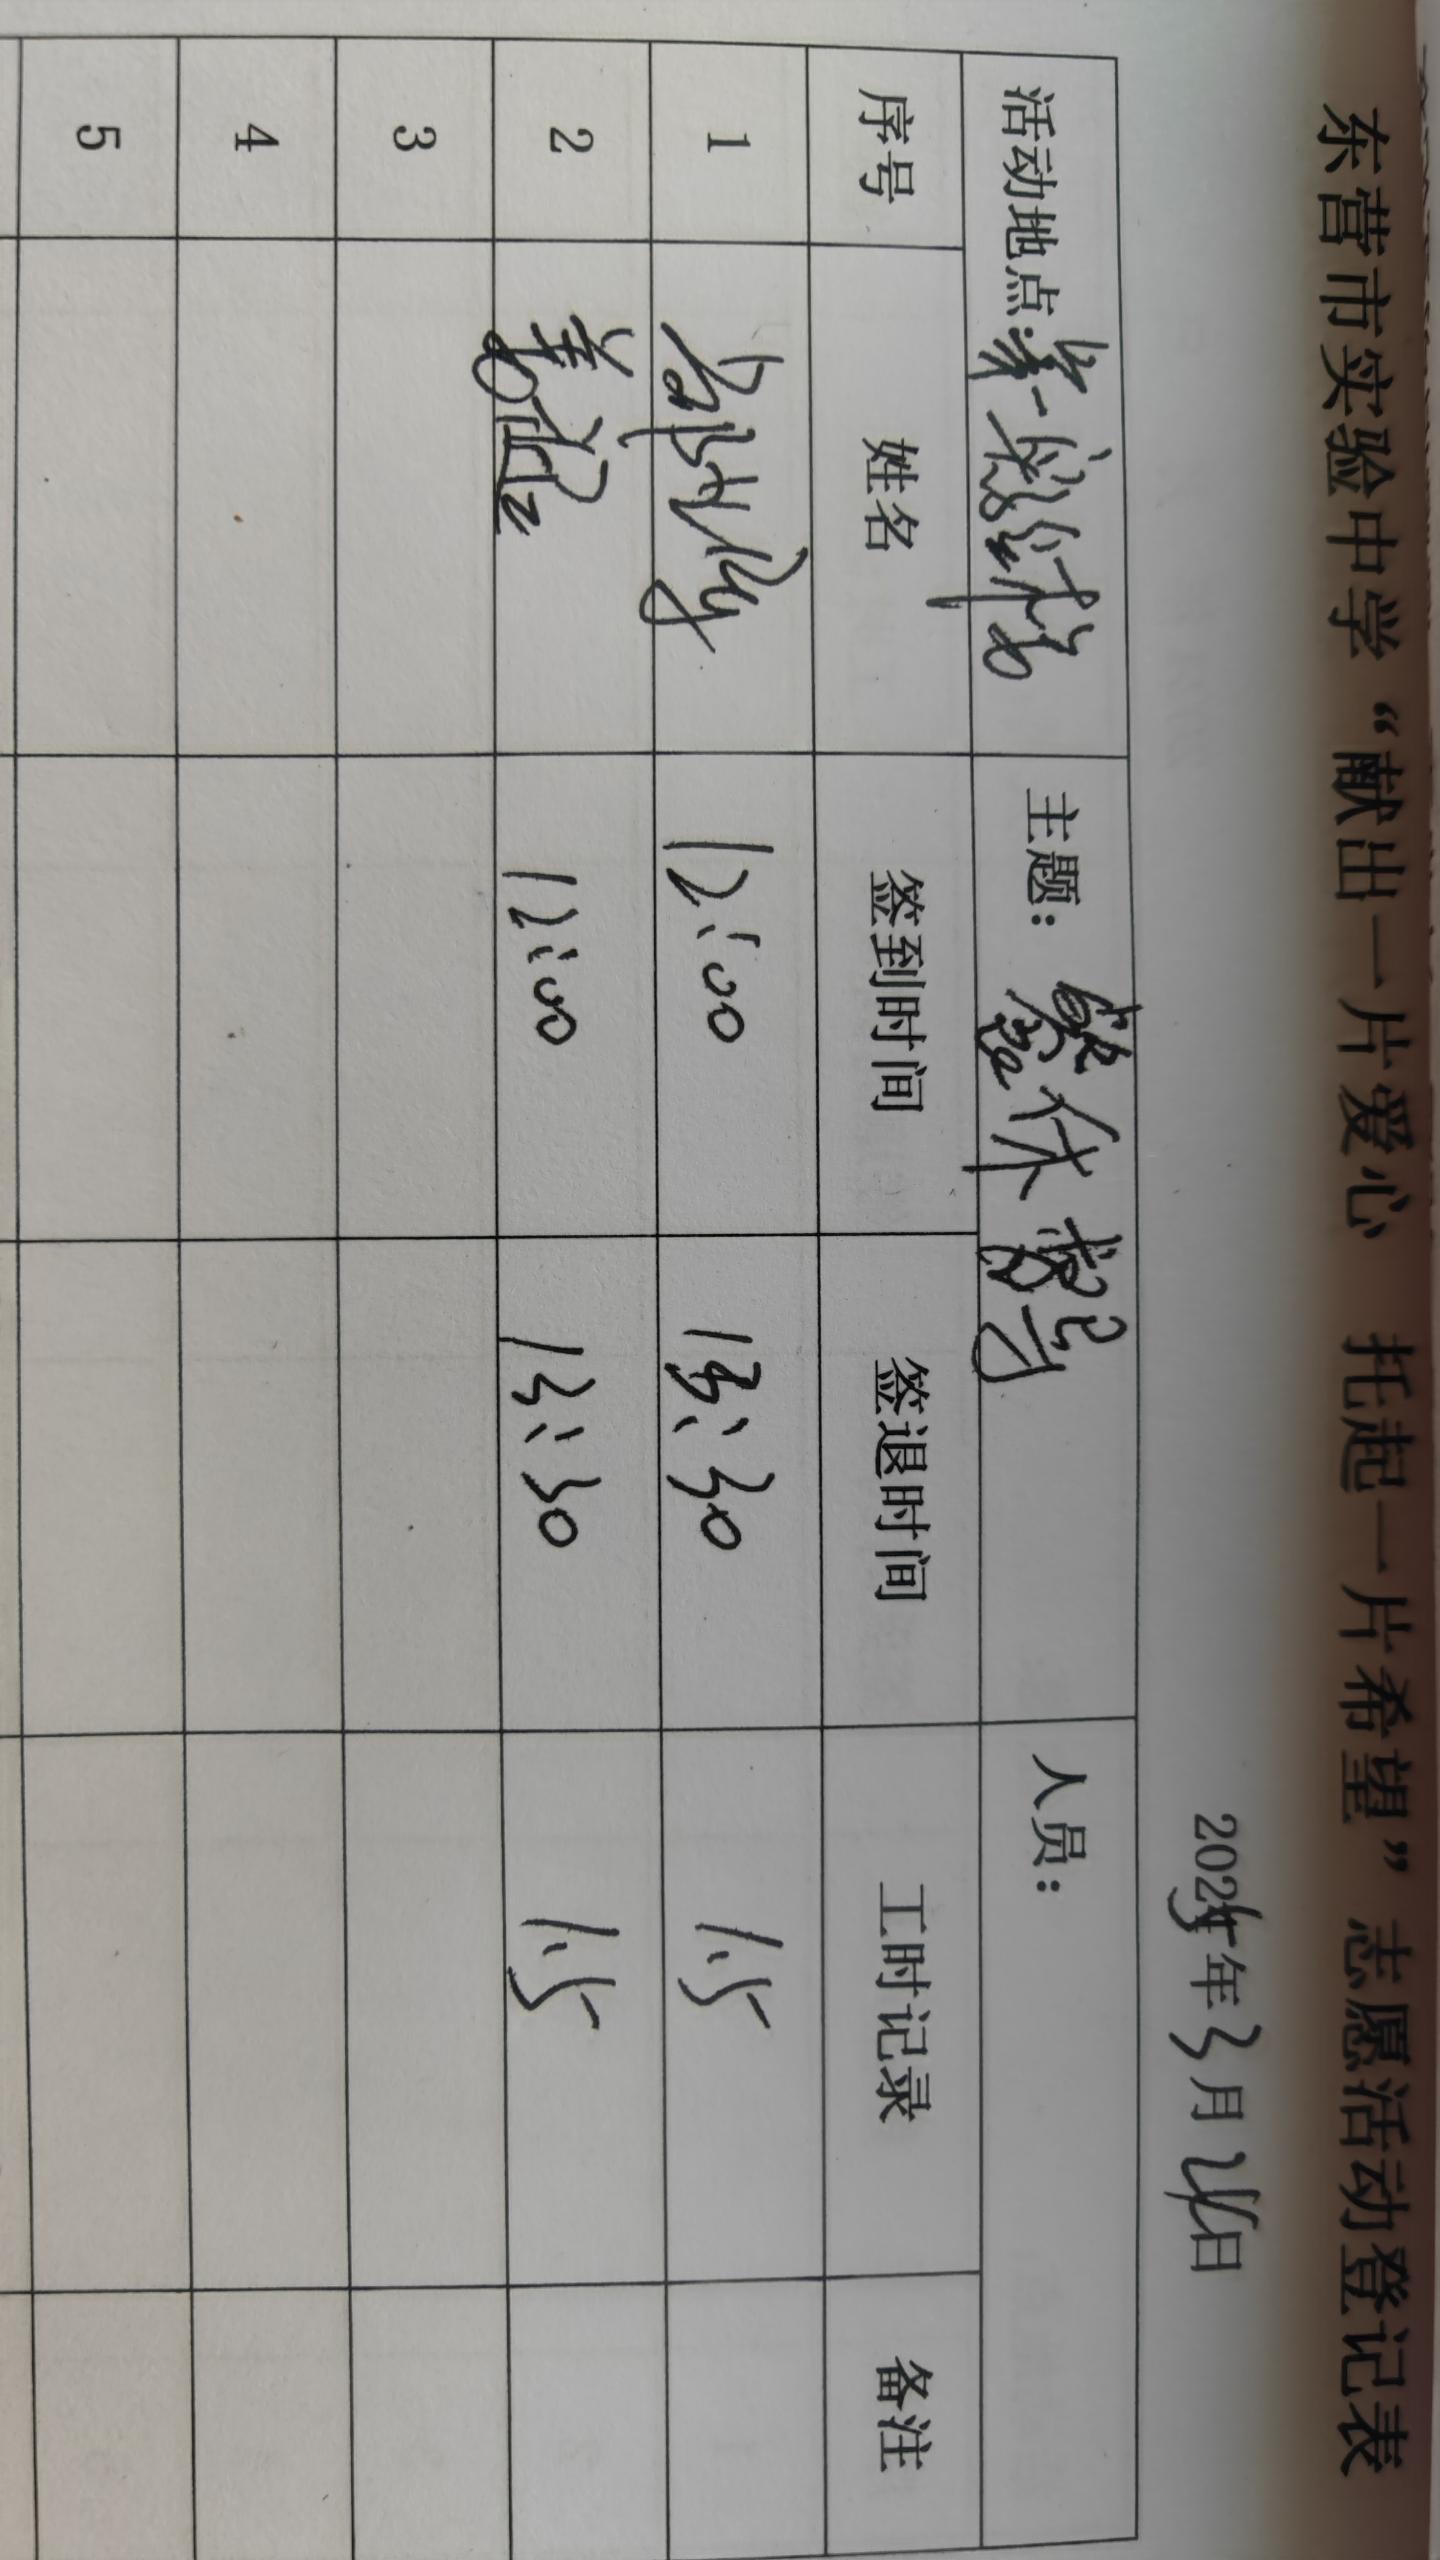 东营市实验中学“献出一片爱心 托起一片希望”志愿活动登记表
2025年3月 日
活动地点: 第一 主题: 整 人员:
序号 姓名 签到时间 签退时间 工时记录 备注
1 12:00 13:30 1.5
2 12:00 13:30 1.5
3
4
5